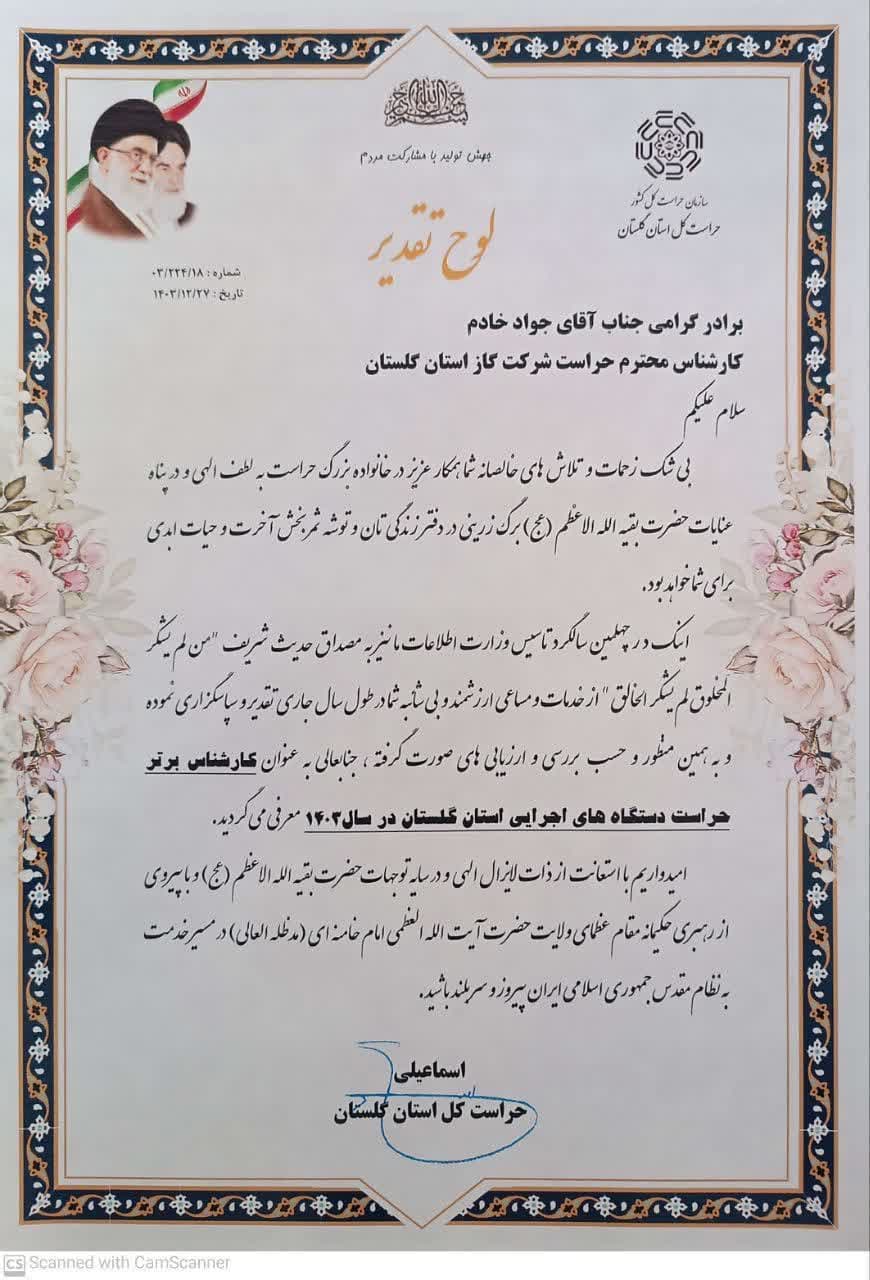 بسم الله الرحمن الرحیم
جهش تولید با مشارکت مردم
سازمان حراست کل کشور
حراست کل استان گلستان
لوح تقدیر
شماره : ۰۳/۲۲۴/۱۸
تاریخ : ۱۴۰۳/۱۲/۲۷
برادر گرامی جناب آقای جواد خادم
کارشناس محترم حراست شرکت گاز استان گلستان
سلام علیکم
بی شک زحمات و تلاش های خالصانه شما همکار عزیز در خانواده بزرگ حراست به لطف الهی و در پناه
عنایات حضرت بقیه الله الاعظم (عج) برگ زرینی در دفتر زندگی تان و توشه ثمربخش آخرت و حیات ابدی
برای شما خواهد بود.
اینک در چهلمین سالگرد تاسیس وزارت اطلاعات ما نیز به مصداق حدیث شریف "من لم یشکر
المخلوق لم یشکر الخالق" از خدمات و مساعی ارزشمند و بی شائبه شما در طول سال جاری تقدیر و سپاسگزاری نموده
و به همین منظور و حسب بررسی و ارزیابی های صورت گرفته ، جنابعالی به عنوان کارشناس برتر
حراست دستگاه های اجرایی استان گلستان در سال۱۴۰۳ معرفی می گردید.
امیدواریم با استعانت از ذات لایزال الهی و در سایه توجهات حضرت بقیه الله الاعظم (عج) و با پیروی
از رهبری حکیمانه مقام عظمای ولایت حضرت آیت الله العظمی امام خامنه ای (مدظله العالی) در مسیر خدمت
به نظام مقدس جمهوری اسلامی ایران پیروز و سربلند باشید.
اسماعیلی
حراست کل استان گلستان
CS Scanned with CamScanner